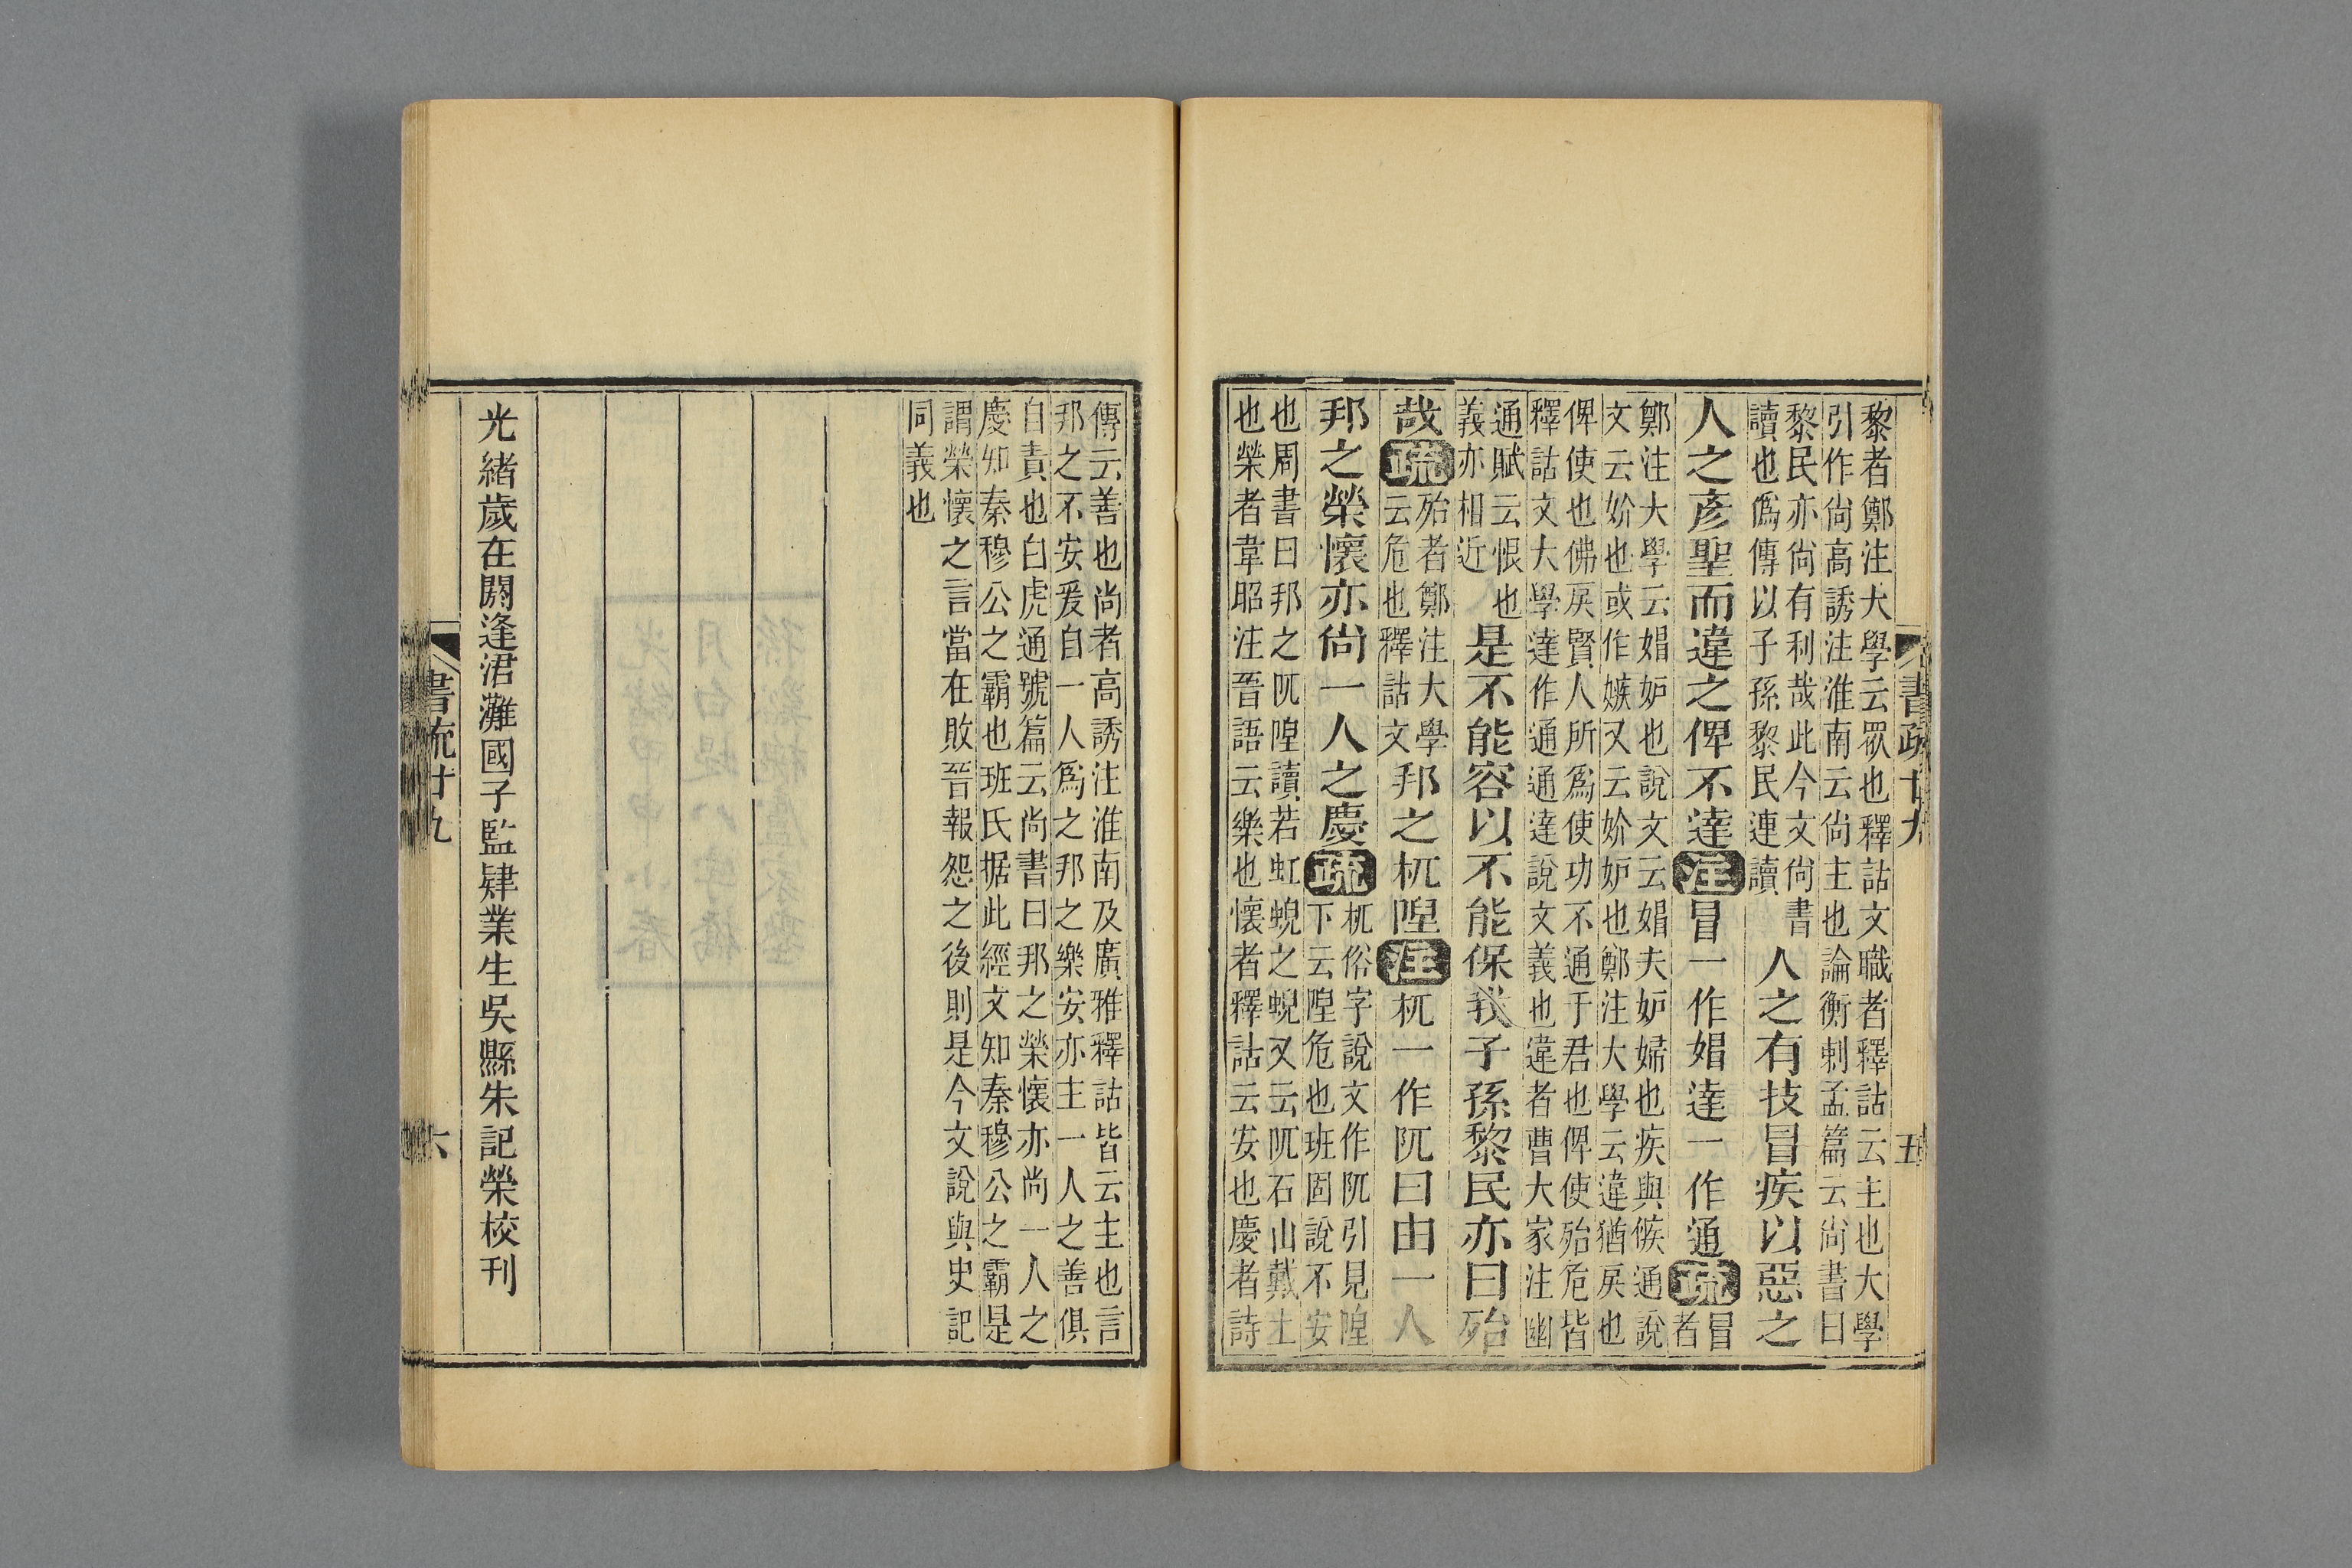 書疏廿九
五
黎者鄭注大學云眾也釋詁文職者釋詁云主也大學
引作尙高誘注淮南云尙主也論衡刺孟篇云尙書曰
黎民亦尙有利哉此今文尙書
讀也僞傳以子孫黎民連讀
人之有技冒疾以惡之
人之彥聖而違之俾不達注冒一作媢達一作通疏冒
者
鄭注大學云媢妒也說文云媢夫妒婦也疾與㑵通說
文云妎也或作嫉又云妎妒也鄭注大學云違猶戾也
俾使也佛戾賢人所爲使功不通于君也俾使殆危皆
釋詁文大學達作通通達說文義也違者曹大家注幽
通賦云恨也
義亦相近
是不能容以不能保我子孫黎民亦曰殆
哉疏
殆者鄭注大學
云危也釋詁文
邦之杌隉注杌一作阢曰由一人
邦之榮懷亦尙一人之慶疏
杌俗字說文作阢引見隉
下云隉危也班固說不安
也周書曰邦之阢隉讀若虹蜺之蜺又云阢石山戴土
也榮者韋昭注晉語云樂也懷者釋詁云安也慶者詩
傳云善也尙者高誘注淮南及廣雅釋詁皆云主也言
邦之不安爰自一人爲之邦之樂安亦主一人之善俱
自責也白虎通號篇云尙書曰邦之榮懷亦尙一人之
慶知秦穆公之霸也班氏据此經文知秦穆公之霸是
謂榮懷之言當在敗晉報怨之後則是今文說與史記
同義也
光緒歲在閼逢涒灘國子監肄業生吳縣朱記榮校刊
書疏廿九
六